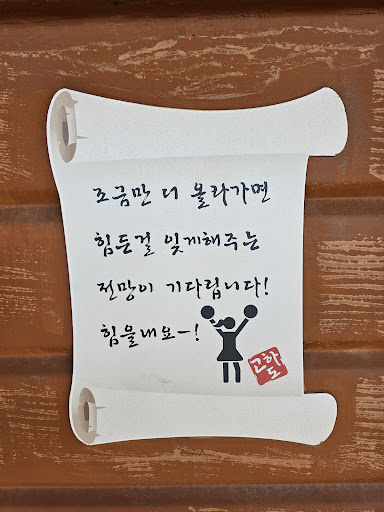 조금만 더 올라가면
힘든걸 잊게해주는
전망이 기다립니다!
힘을내요~!
고하도